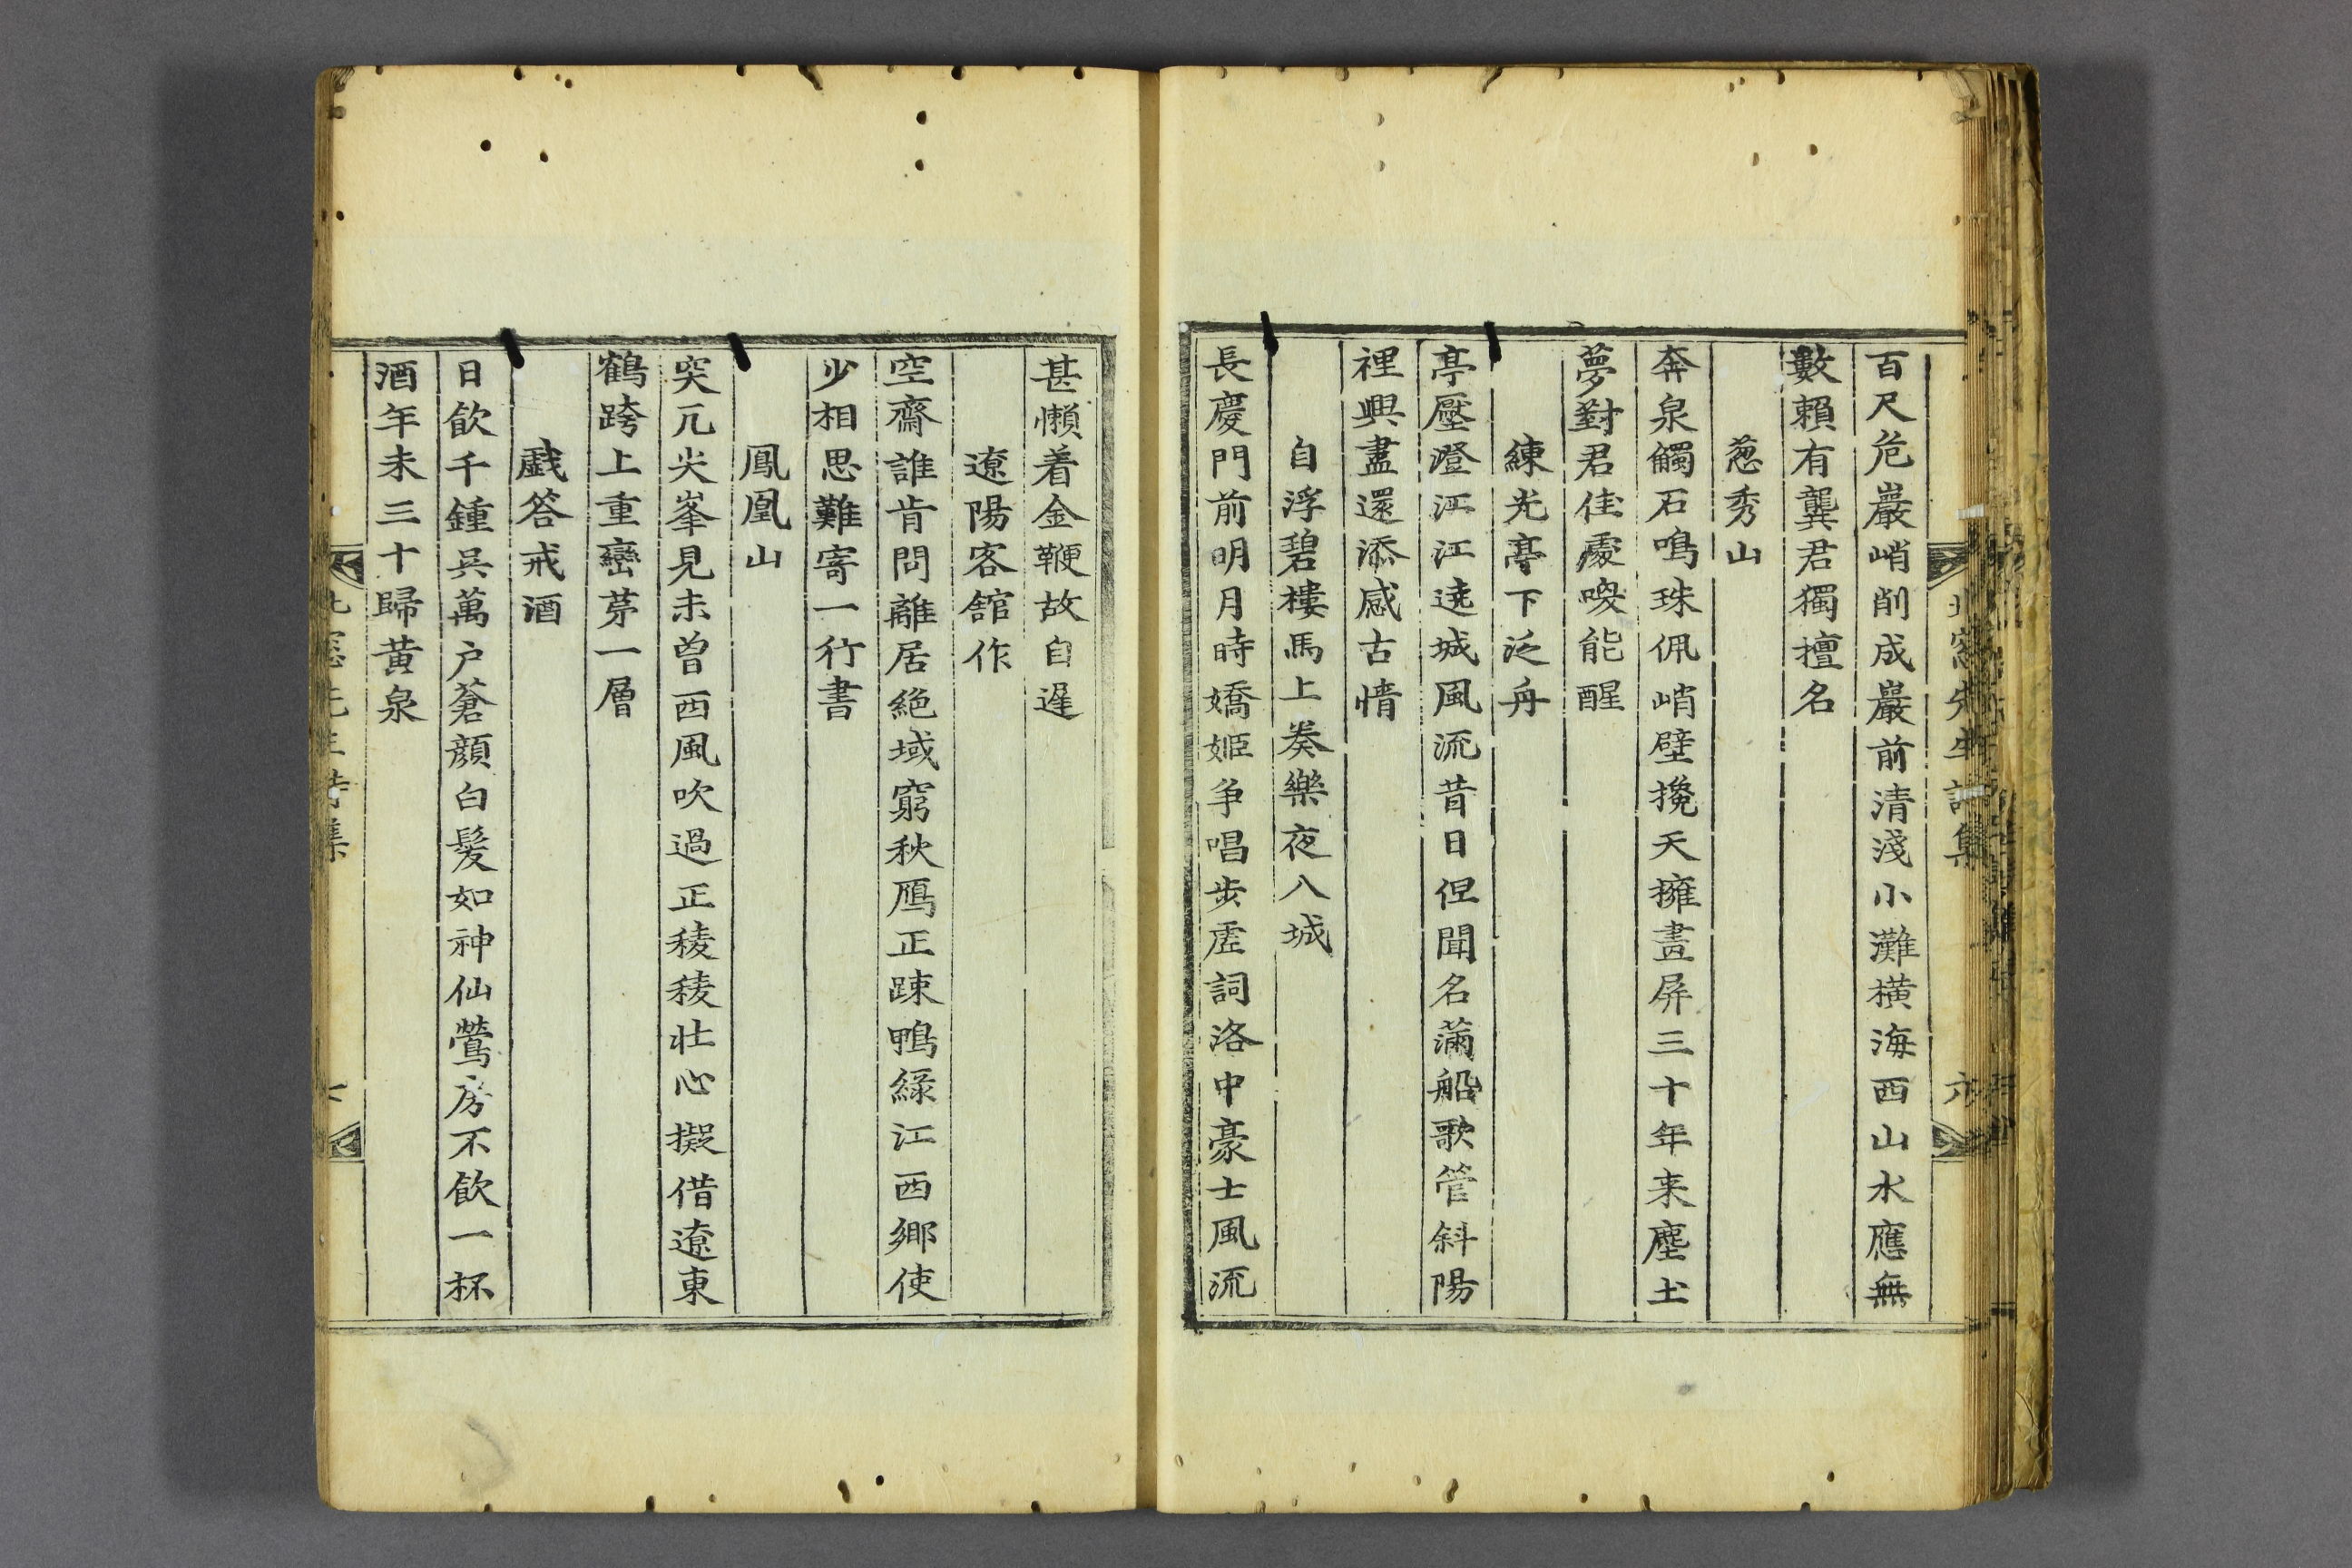 北窓先生詩集
六
百尺危巖峭削成巖前清淺小灘橫海西山水應無
數賴有龔君獨擅名
葱秀山
奔泉觸石鳴珠佩峭壁攙天擁畫屏三十年来塵土
夢對君佳處喚能醒
練光亭下泛舟
亭壓澄江江遶城風流昔日但聞名滿船歌管斜陽
裡興盡還添感古情
自浮碧樓馬上奏樂夜入城
長慶門前明月時嬌姬争唱步虛詞洛中豪士風流
甚懶着金鞭故自遲
遼陽客舘作
空齋誰肯問離居絶域窮秋鴈正踈鴨綠江西鄉使
少相思難寄一行書
鳳凰山
突兀尖峯見未曾西風吹過正稜稜壯心擬借遼東
鶴跨上重巒第一層
戱答戒酒
日飮千鍾吳萬户蒼顔白髮如神仙鶯房不飮一杯
酒年未三十歸黃泉